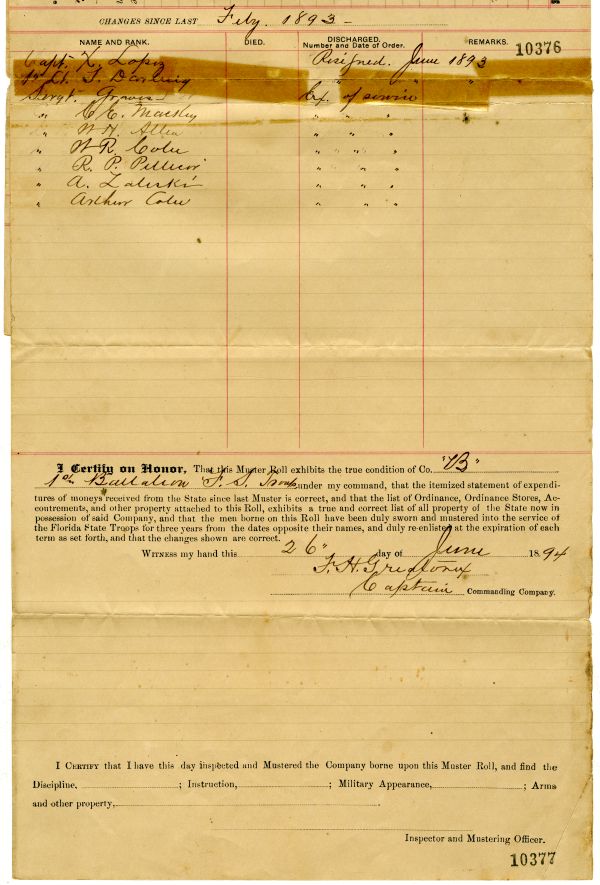 CHANGES SINCE LAST Feby. 1893 -
NAME AND RANK. DIED. DISCHARGED. Number and Date of Order. REMARKS. 10376
Capt. Lopez Resigned. June 1893
1st Lt. " " "
Sergt. Graves Ex. of service
" C. E. Mackey " " "
" W. H. Allen " " "
" W. R. Colee " " "
" R. P. " " "
" A. Zaleski " " "
" Arthur Colee " " "
I Certify on Honor, That this Muster Roll exhibits the true condition of Co. "B"
1st Battalion F. S. Troops under my command, that the itemized statement of expendi-
tures of moneys received from the State since last Muster is correct, and that the list of Ordinance, Ordinance Stores, Ac-
coutrements, and other property attached to this Roll, exhibits a true and correct list of all property of the State now in
possession of said Company, and that the men borne on this Roll have been duly sworn and mustered into the service of
the Florida State Troops for three years from the dates opposite their names, and duly re-enlisted at the expiration of each
term as set forth, and that the changes shown are correct.
WITNESS my hand this 26" day of June 1894
F. H.
Captain Commanding Company.
I CERTIFY that I have this day inspected and Mustered the Company borne upon this Muster Roll, and find the
Discipline, ; Instruction, ; Military Appearance, ; Arms
and other property, .
Inspector and Mustering Officer.
10377